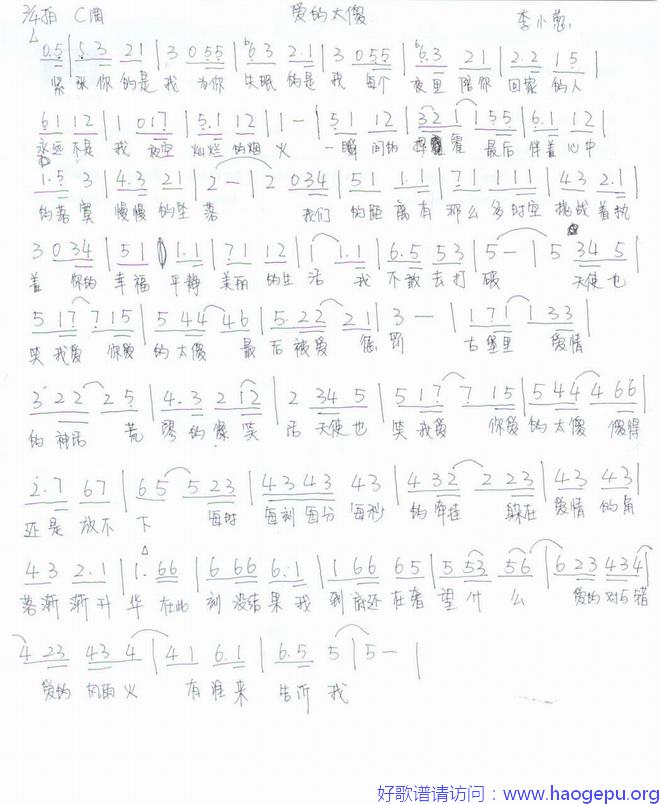 2/4拍 C调 爱的太傻 李小葱
0.5 | 5.3 21 | 3 0 55 | 6.3 2.1 | 3 0 55 | 6.3 21 | 2.2 15 |
紧 张你 的是 我 为你 失眠 的是 我 每个 夜里 陪你 回家 的人
61 12 | 1 017 | 5.1 12 | 1 - | - 51 12 | 321 155 | 6.1 12 |
永远 不是 我 夜空 灿烂 的烟 火 一瞬 间的 最后 伴着 心中
1.5 3 | 4.3 21 | 2 - | 2 034 | 51 1.1 | 71 111 | 43 2.1 |
的落 寞 慢慢 的坠 落 我们 的距 离有 那么 多时空 挑战 着执
3 0 34 | 51 1.1 | 71 12 | 1 1.1 | 6.5 53 | 5 - | 5 34 5
着 你的 幸福 平静 美丽 的生 活 我 不敢 去打 破 天使 也
5 17 7 15 | 5 44 46 | 5.22 21 | 3 - | 171 133 |
笑 我爱 你爱 的太傻 最 后被爱 惩 罚 古堡里 爱情
3 22 25 | 4.3 2 12 | 2 34 5 | 5 17 7 15 | 544 4 66 |
的 神话 荒 谬的 笑 话 天使 也 笑 我爱 你爱 的太傻 傻得
2.7 67 | 65 5 23 | 43 43 43 | 432 2 23 | 43 43 |
还是 放不 下 每时 每刻 每分 每秒 的牵挂 躲在 爱情 的角
43 2.1 | 1. 66 | 6 66 6.1 | 1 66 65 | 5 53 56 | 6 23 434 |
落 渐渐 升 华 在此 刻 没结 果 我 到底还 在奢 望什 么 爱的 对与错
4 23 43 4 | 41 6.1 | 6.5 5 | 5 - |
爱的 风雨 火 有谁来 告诉 我
好歌谱请访问：www.haogepu.org